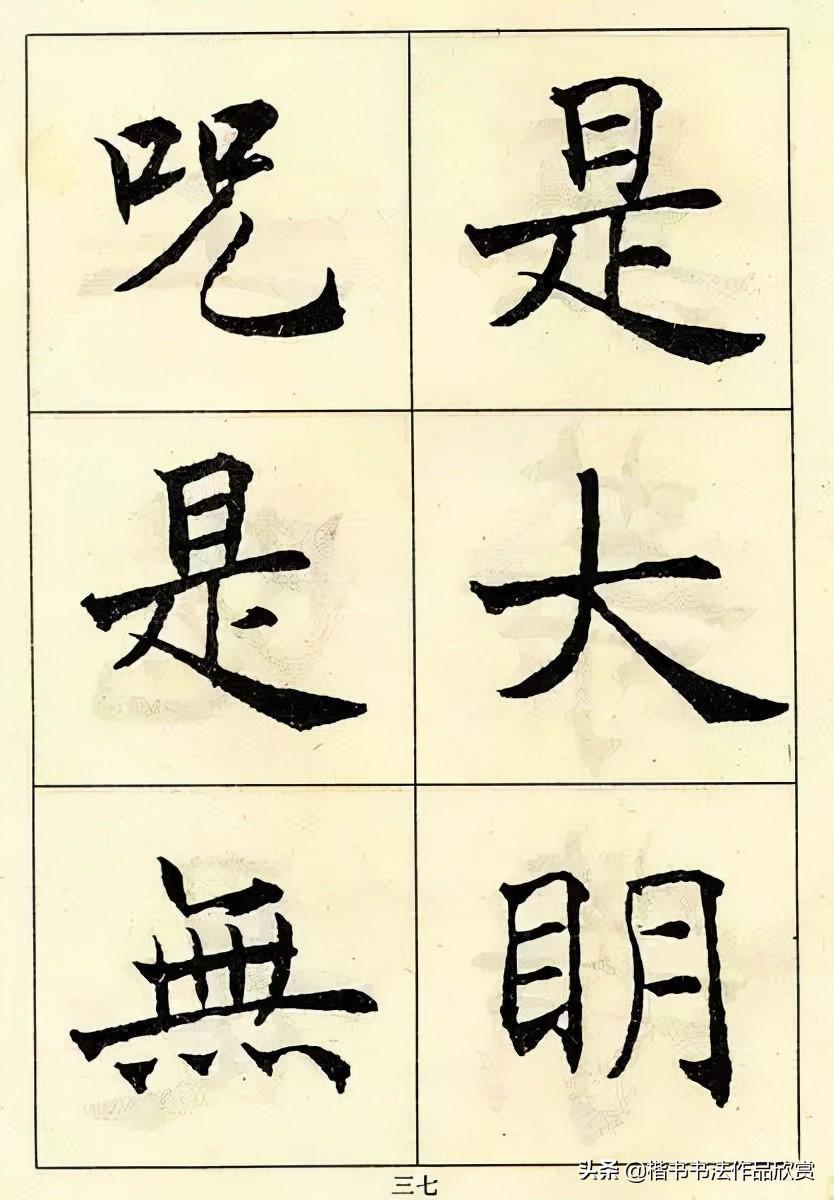 是大明
呪是無
三七
头条 @楷书书法作品欣赏